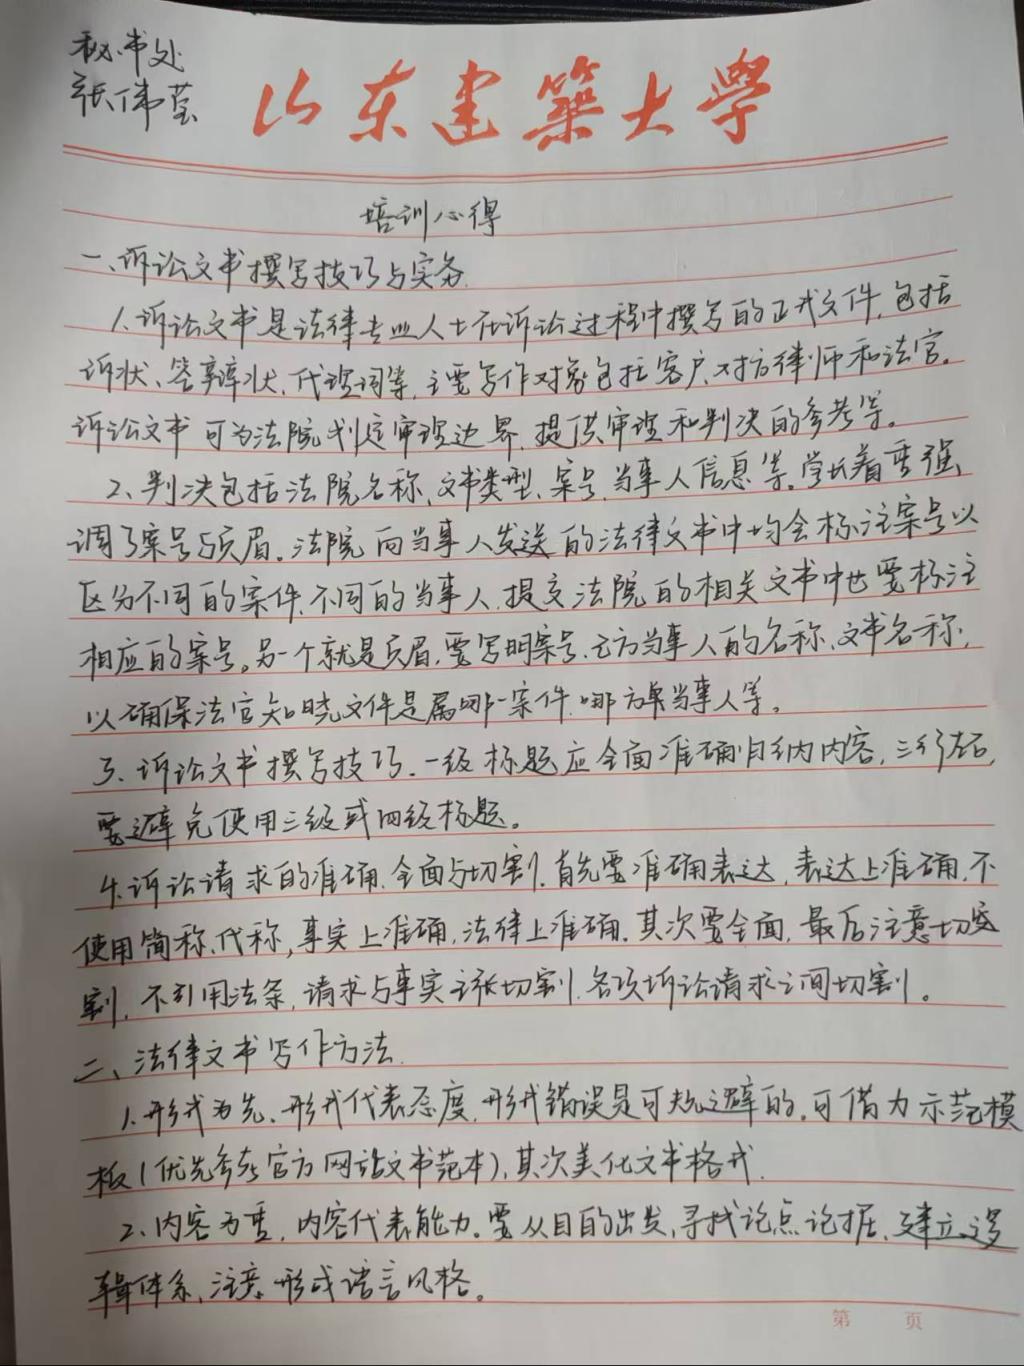 秘书处
张伟莹
山东建築大学
培训心得
一、诉讼文书撰写技巧与实务.
1.诉讼文书是法律专业人士在诉讼过程中撰写的正式文件,包括
诉状、答辩状、代理词等,主要写作对象包括客户、对方律师和法官。
诉讼文书可为法院划定审理边界,提供审理和判决的参考等。
2、判决包括法院名称、文书类型、案号、当事人信息等。学长着重强
调了案号与页眉。法院向当事人发送的法律文书中均会标注案号以
区分不同的案件、不同的当事人,提交法院的相关文书中也要标注
相应的案号。另一个就是页眉,要写明案号、己方当事人的名称、文书名称,
以确保法官知晓文件是属哪一案件、哪方当事人等。
3、诉讼文书撰写技巧.一级标题应全面准确归纳内容,三行左右,
要避免使用三级或四级标题。
4.诉讼请求的准确、全面与切割.首先要准确表达,表达上准确,不
使用简称、代称,事实上准确,法律上准确.其次要全面,最后注意切
割,不引用法条,请求与事实主张切割,各项诉讼请求之间切割。
二、法律文书写作方法.
1.形式为先、形式代表态度,形式错误是可规避的,可借力示范模
板(优先参考官方网站文书范本),其次美化文书格式.
2、内容为重,内容代表能力.要从目的出发,寻找论点论据,建立逻
辑体系,注意形成语言风格。
第 页